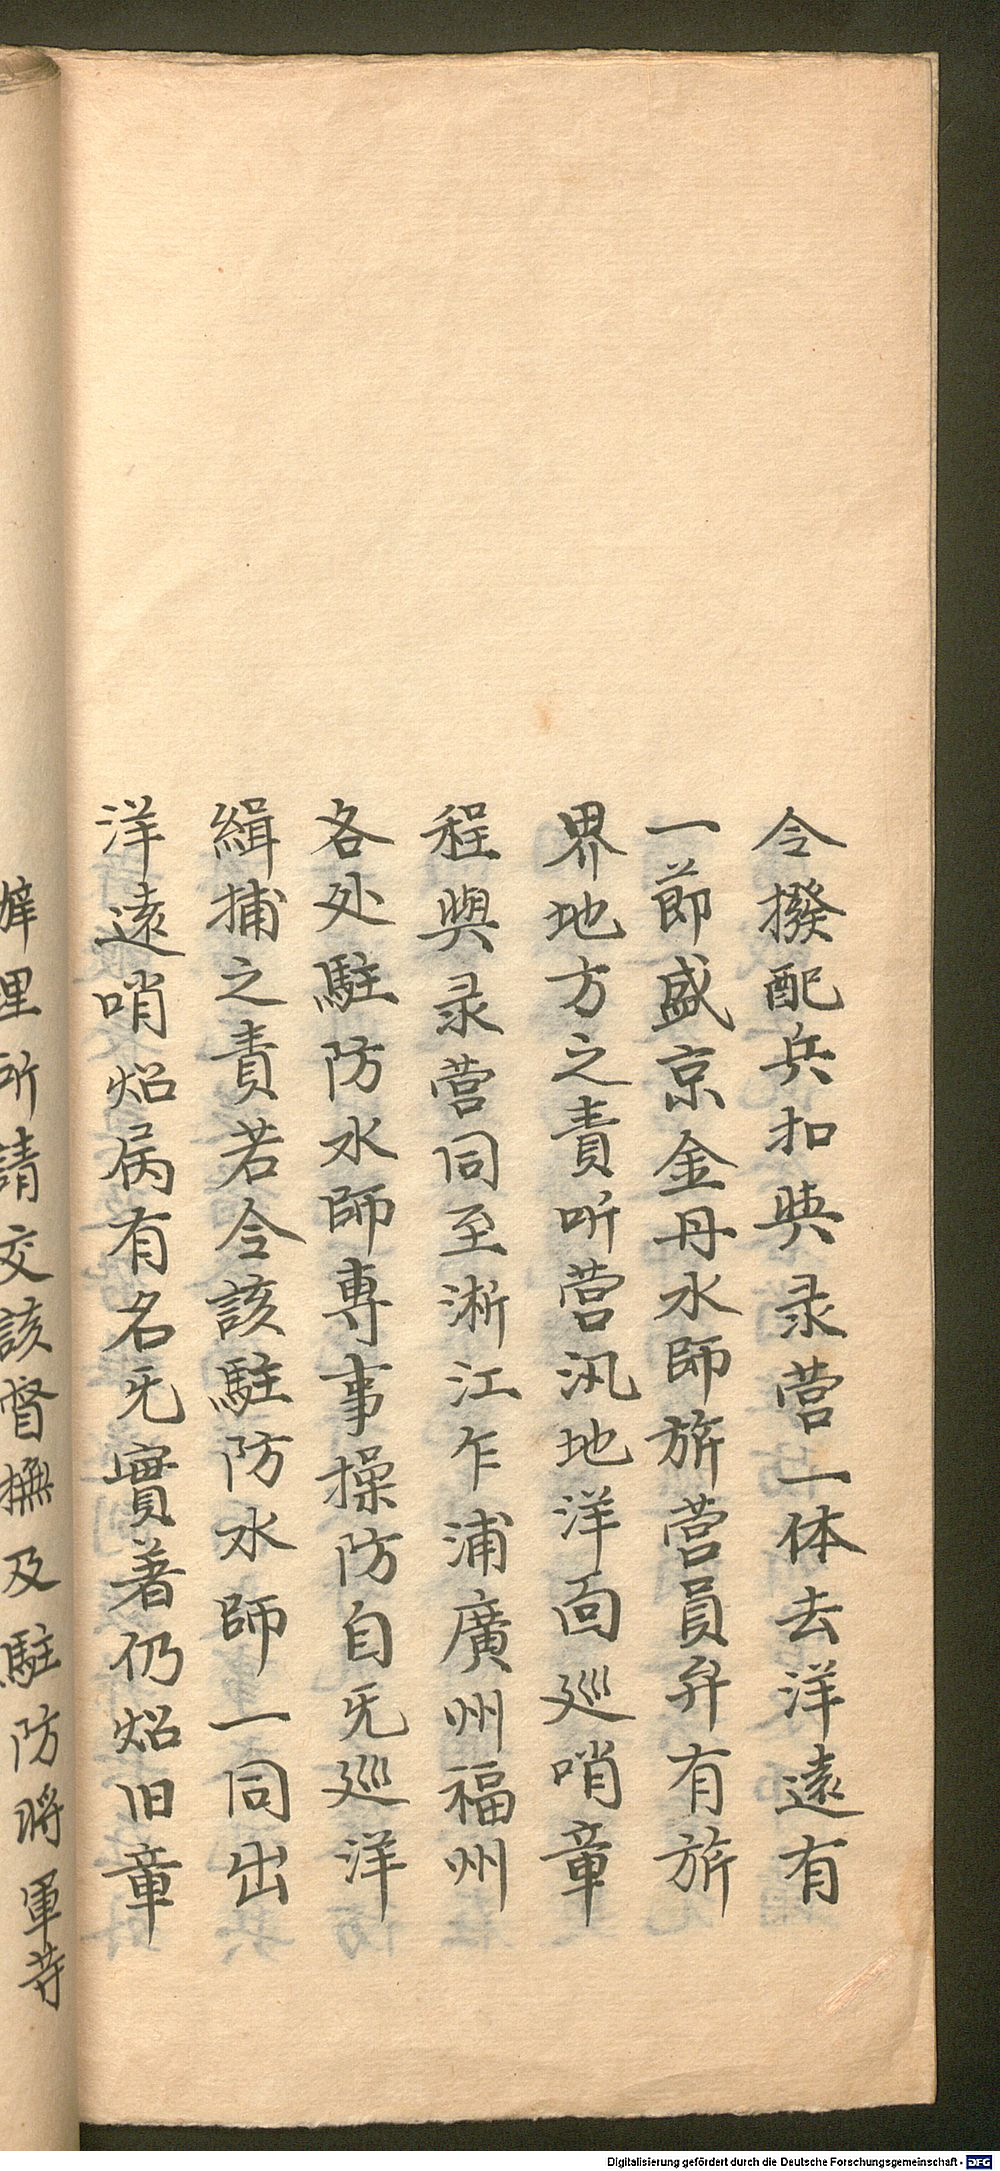 令撥配兵扣與录营一体去洋遠有
一節盛京金丹水師旂营員弁有旂
界地方之責听营汛地洋面巡哨章
程與录营同至淅江乍浦廣州福州
各处駐防水師專事操防自旡巡洋
緝捕之責若令該駐防水師一同出
洋遠哨炤居有名旡實著仍炤旧章
里所請交該督撫及駐防將軍䓁
Digitalisierung gefördert durch die Deutsche Forschungsgemeinschaft - DFG